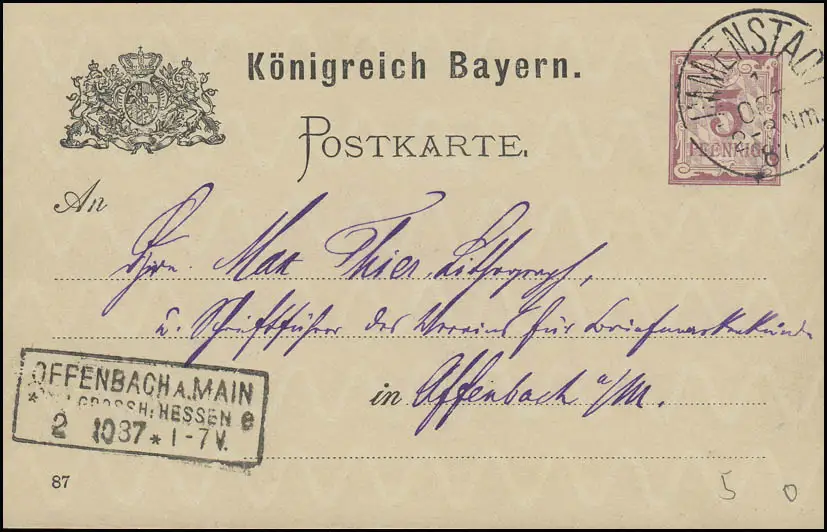 Königreich Bayern.
POSTKARTE.
IMMENSTADT
1
OC
2-3 Nm.
87
5
PFENNIG
An
Herrn Max Thier, Lithograph,
u. Schriftführer des Vereins für Briefmarkenkunde
in Offenbach a/M.
OFFENBACH A. MAIN
* GROSSH: HESSEN e
2 1087 * 1-7V.
87
5 0